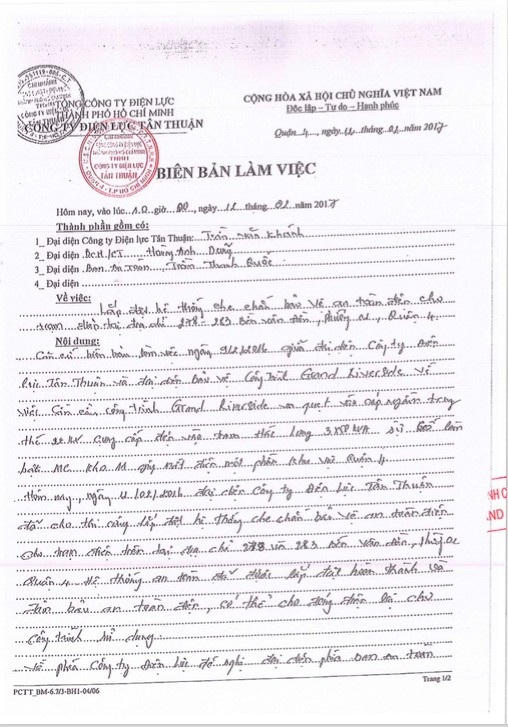 TỔNG CÔNG TY ĐIỆN LỰC
THÀNH PHỐ HỒ CHÍ MINH
CÔNG TY ĐIỆN LỰC TÂN THUẬN
CỘNG HÒA XÃ HỘI CHỦ NGHĨA VIỆT NAM
Độc lập – Tự do – Hạnh phúc
Quận 4, ngày 12 tháng 02 năm 2017
CÔNG TY
ĐIỆN LỰC
TÂN THUẬN
BIÊN BẢN LÀM VIỆC
Hôm nay, vào lúc 10 giờ 00, ngày 12 tháng 02 năm 2017
Thành phần gồm có:
1_ Đại diện Công ty Điện lực Tân Thuận: Trần Văn Khánh
2_ Đại diện BCH/CT Hoàng Anh Dũng
3_ Đại diện Ban An toàn, Trần Thanh Quốc
4_ Đại diện
Về việc: Lắp đặt hệ thống che chắn bảo vệ an toàn điện cho
trạm điện tại địa chỉ 278 - 283 Bến Vân Đồn, Phường 02, Quận 4.
Nội dung:
Căn cứ biên bản làm việc ngày giữa đại diện Công ty Điện
lực Tân Thuận và đại diện bảo vệ Công trình Grand Riverside về
việc cần cẩu công trình Grand Riverside va quẹt vào cáp ngầm trung
thế cung cấp điện vào trạm
điện một phần khu vực Quận 4.
Hôm nay, ngày đại diện Công ty Điện lực Tân Thuận
đã cho thi công lắp đặt hệ thống che chắn bảo vệ an toàn điện
cho trạm điện trên tại địa chỉ 278 và 283 Bến Vân Đồn, Phường 02
Quận 4. Hệ thống an toàn đã được lắp đặt hoàn thành và
đảm bảo an toàn điện, có thể cho đóng điện lại cho
Công trình sử dụng.
Về phía Công ty Điện lực đề nghị đại diện phía ban an toàn
PCTT_BM-6.7/3-BH1-04/06
Trang 1/2